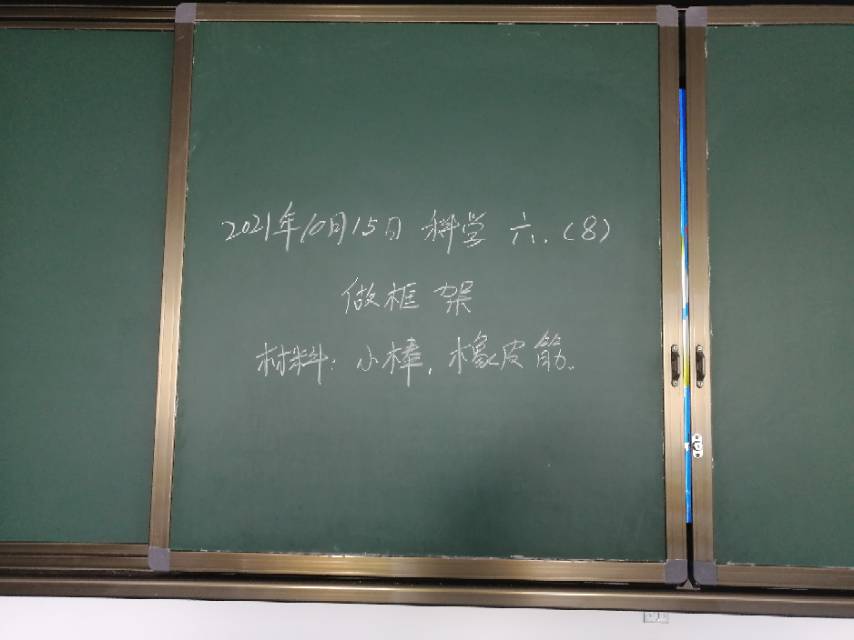 2021年10月15日 科学 六.(8)
做框架
材料:小棒,橡皮筋。